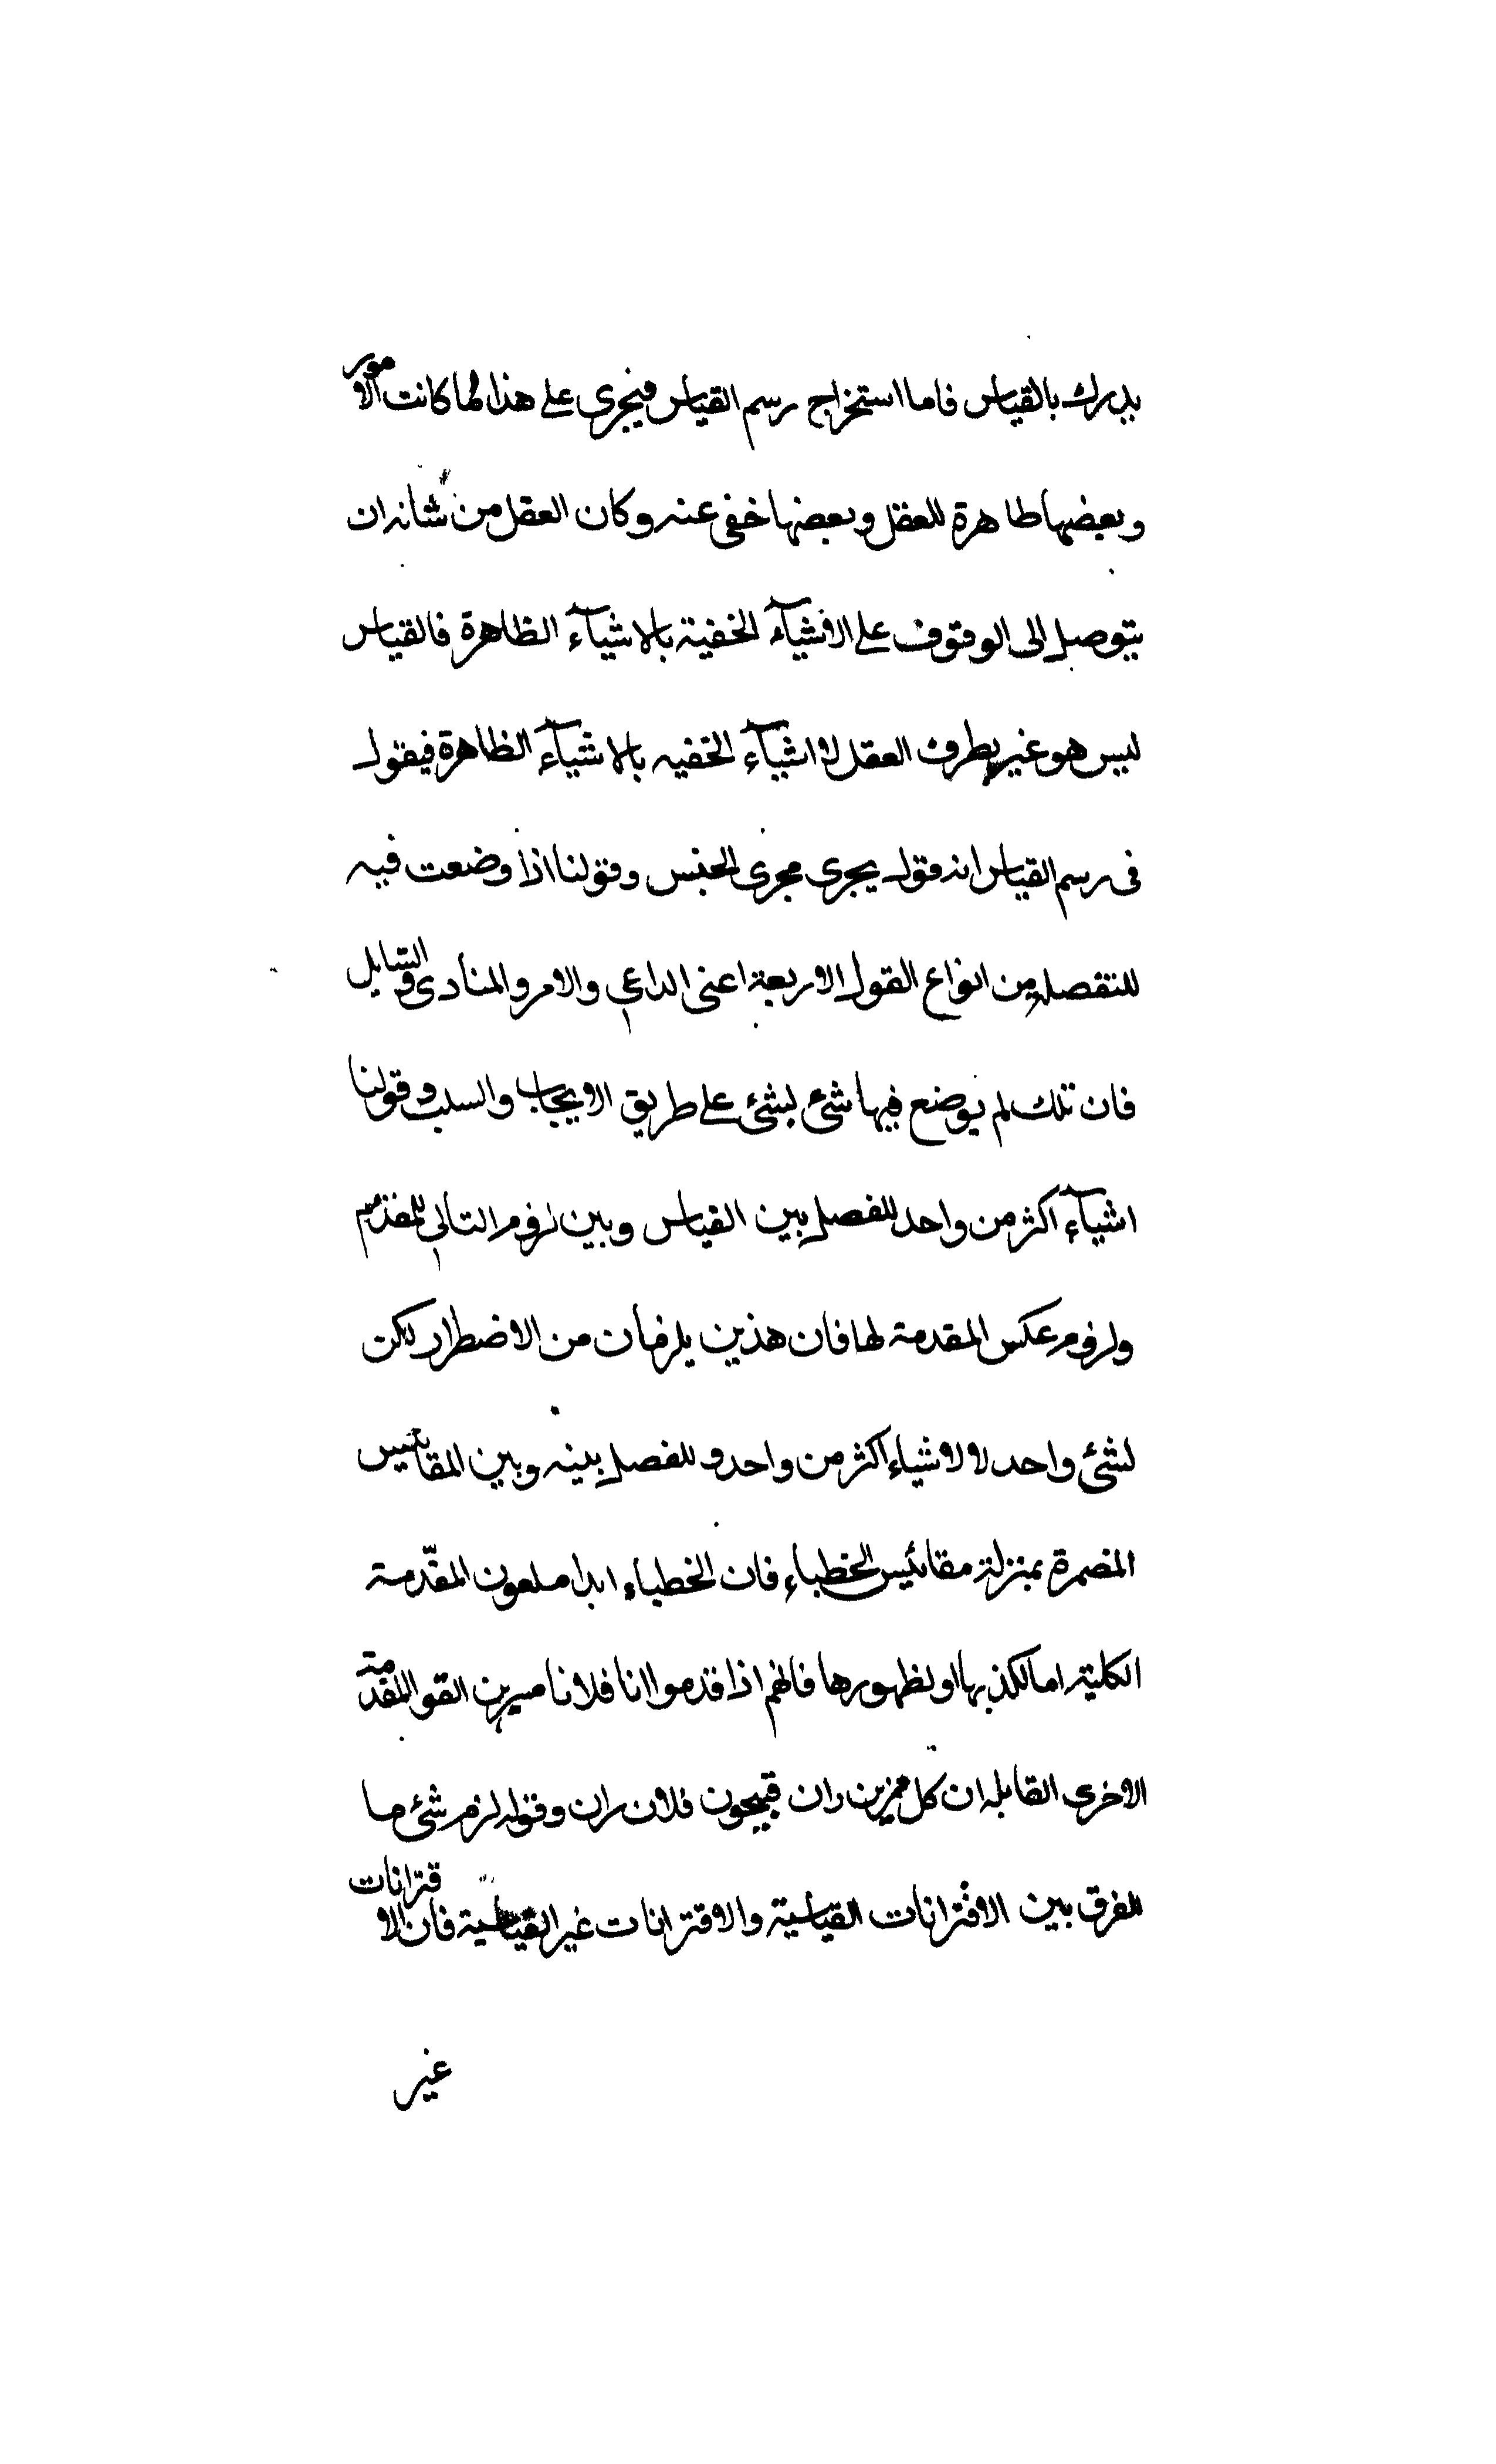 يدرك بالقياس فاما استخراج رسم القياس فيجرى على هذا لما كانت الامور
وبعضها ظاهرة للعقل وبعضها خفى عنه وكان العقل من شانه ان
يتوصل الى الوقوف على الاشيآء الخفية بالاشيآء الظاهرة فالقياس
ليس هو غير تطرف العقل لاشيآء الخفيه بالاشيآء الظاهرة فيقول
فى رسم القياس انه قول يجرى مجرى الجنس وقولنا اذا وضعت فيه
للنفصله من انواع القول الاربعة اعنى الداعى والامر والمنادى والسايل
فان تلك لم يوضع فيها شئ بشئ على طريق الايجاب والسلب وقولنا
اشيآء اكثر من واحد للفصل بين القياس وبين لزوم التالى للمقدم
ولزوم عكس المقدمة لها فان هذين يلزمان من الاضطرار لكن
لشئ واحد لا لاشياء اكثر من واحد وللفصل بينه وبين المقائيس
المضمرة بمنزلة مقائيس الخطباء فان الخطباء ابدا ملعون المقدّمة
الكلية اما لكذبها او لظهورها فانهم اذا قدموا انا فلانا مىزىن القو المقدمة
الاخرى القابله ان كل مىزىن ران فلان ران وقوله لزم شئ ما
للفرق بين الاقترانات القياسية والاقترانات غير القياسية فان الاقترانات
غير